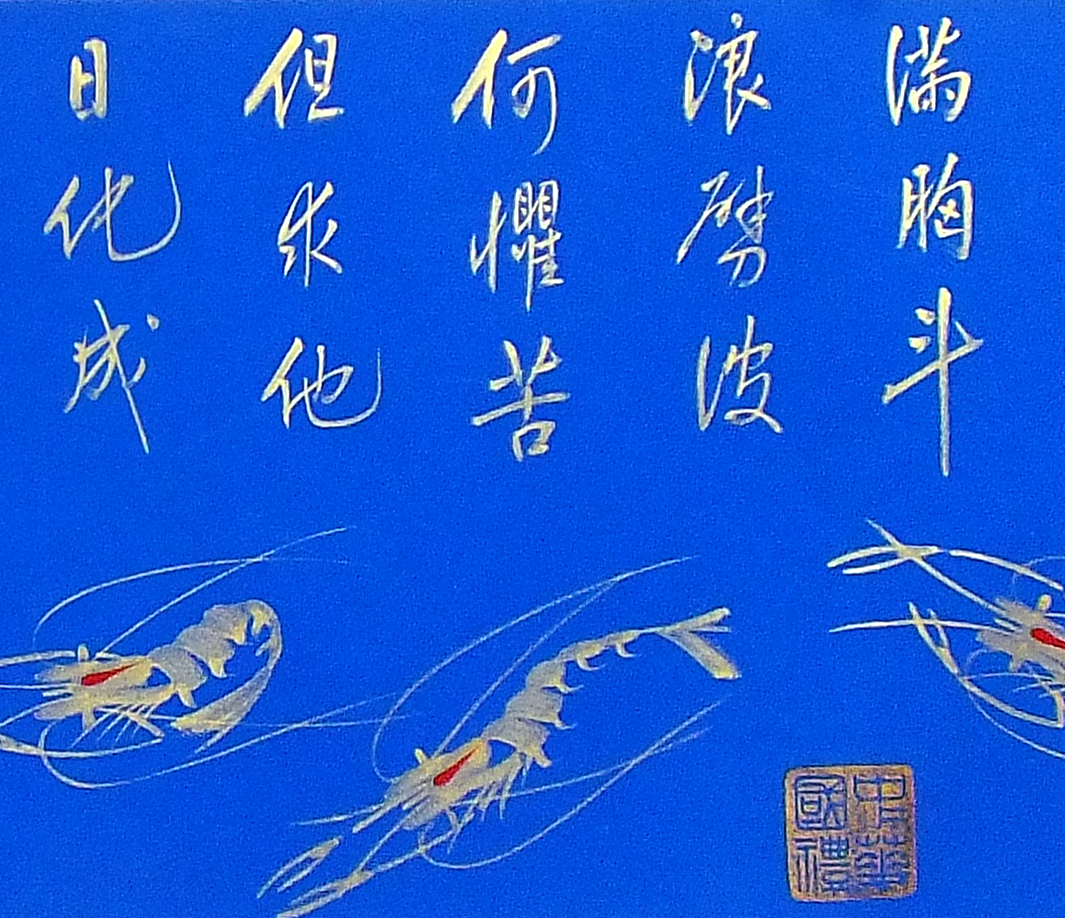 满胸斗
浪劈波
何懼苦
但求他
日化成
中華
國禮